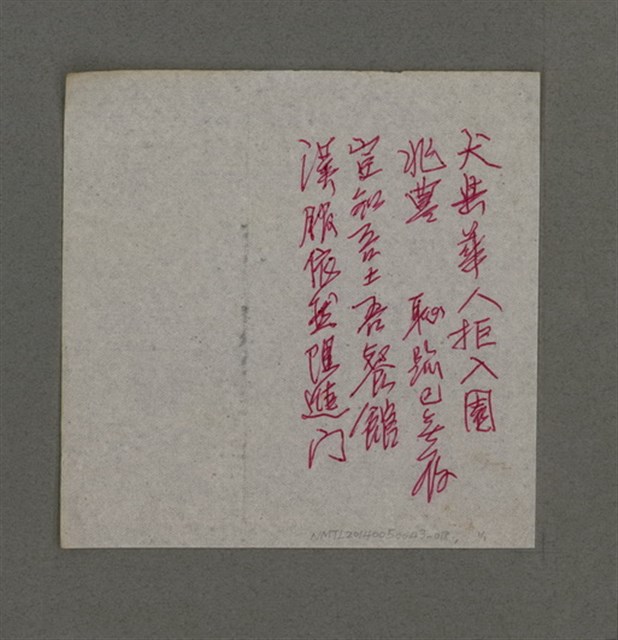 犬與華人拒入園
兆豐 恥跡已無存
豈知吾土吾餐館
漢服依然阻進門
NMTL20140050043-018